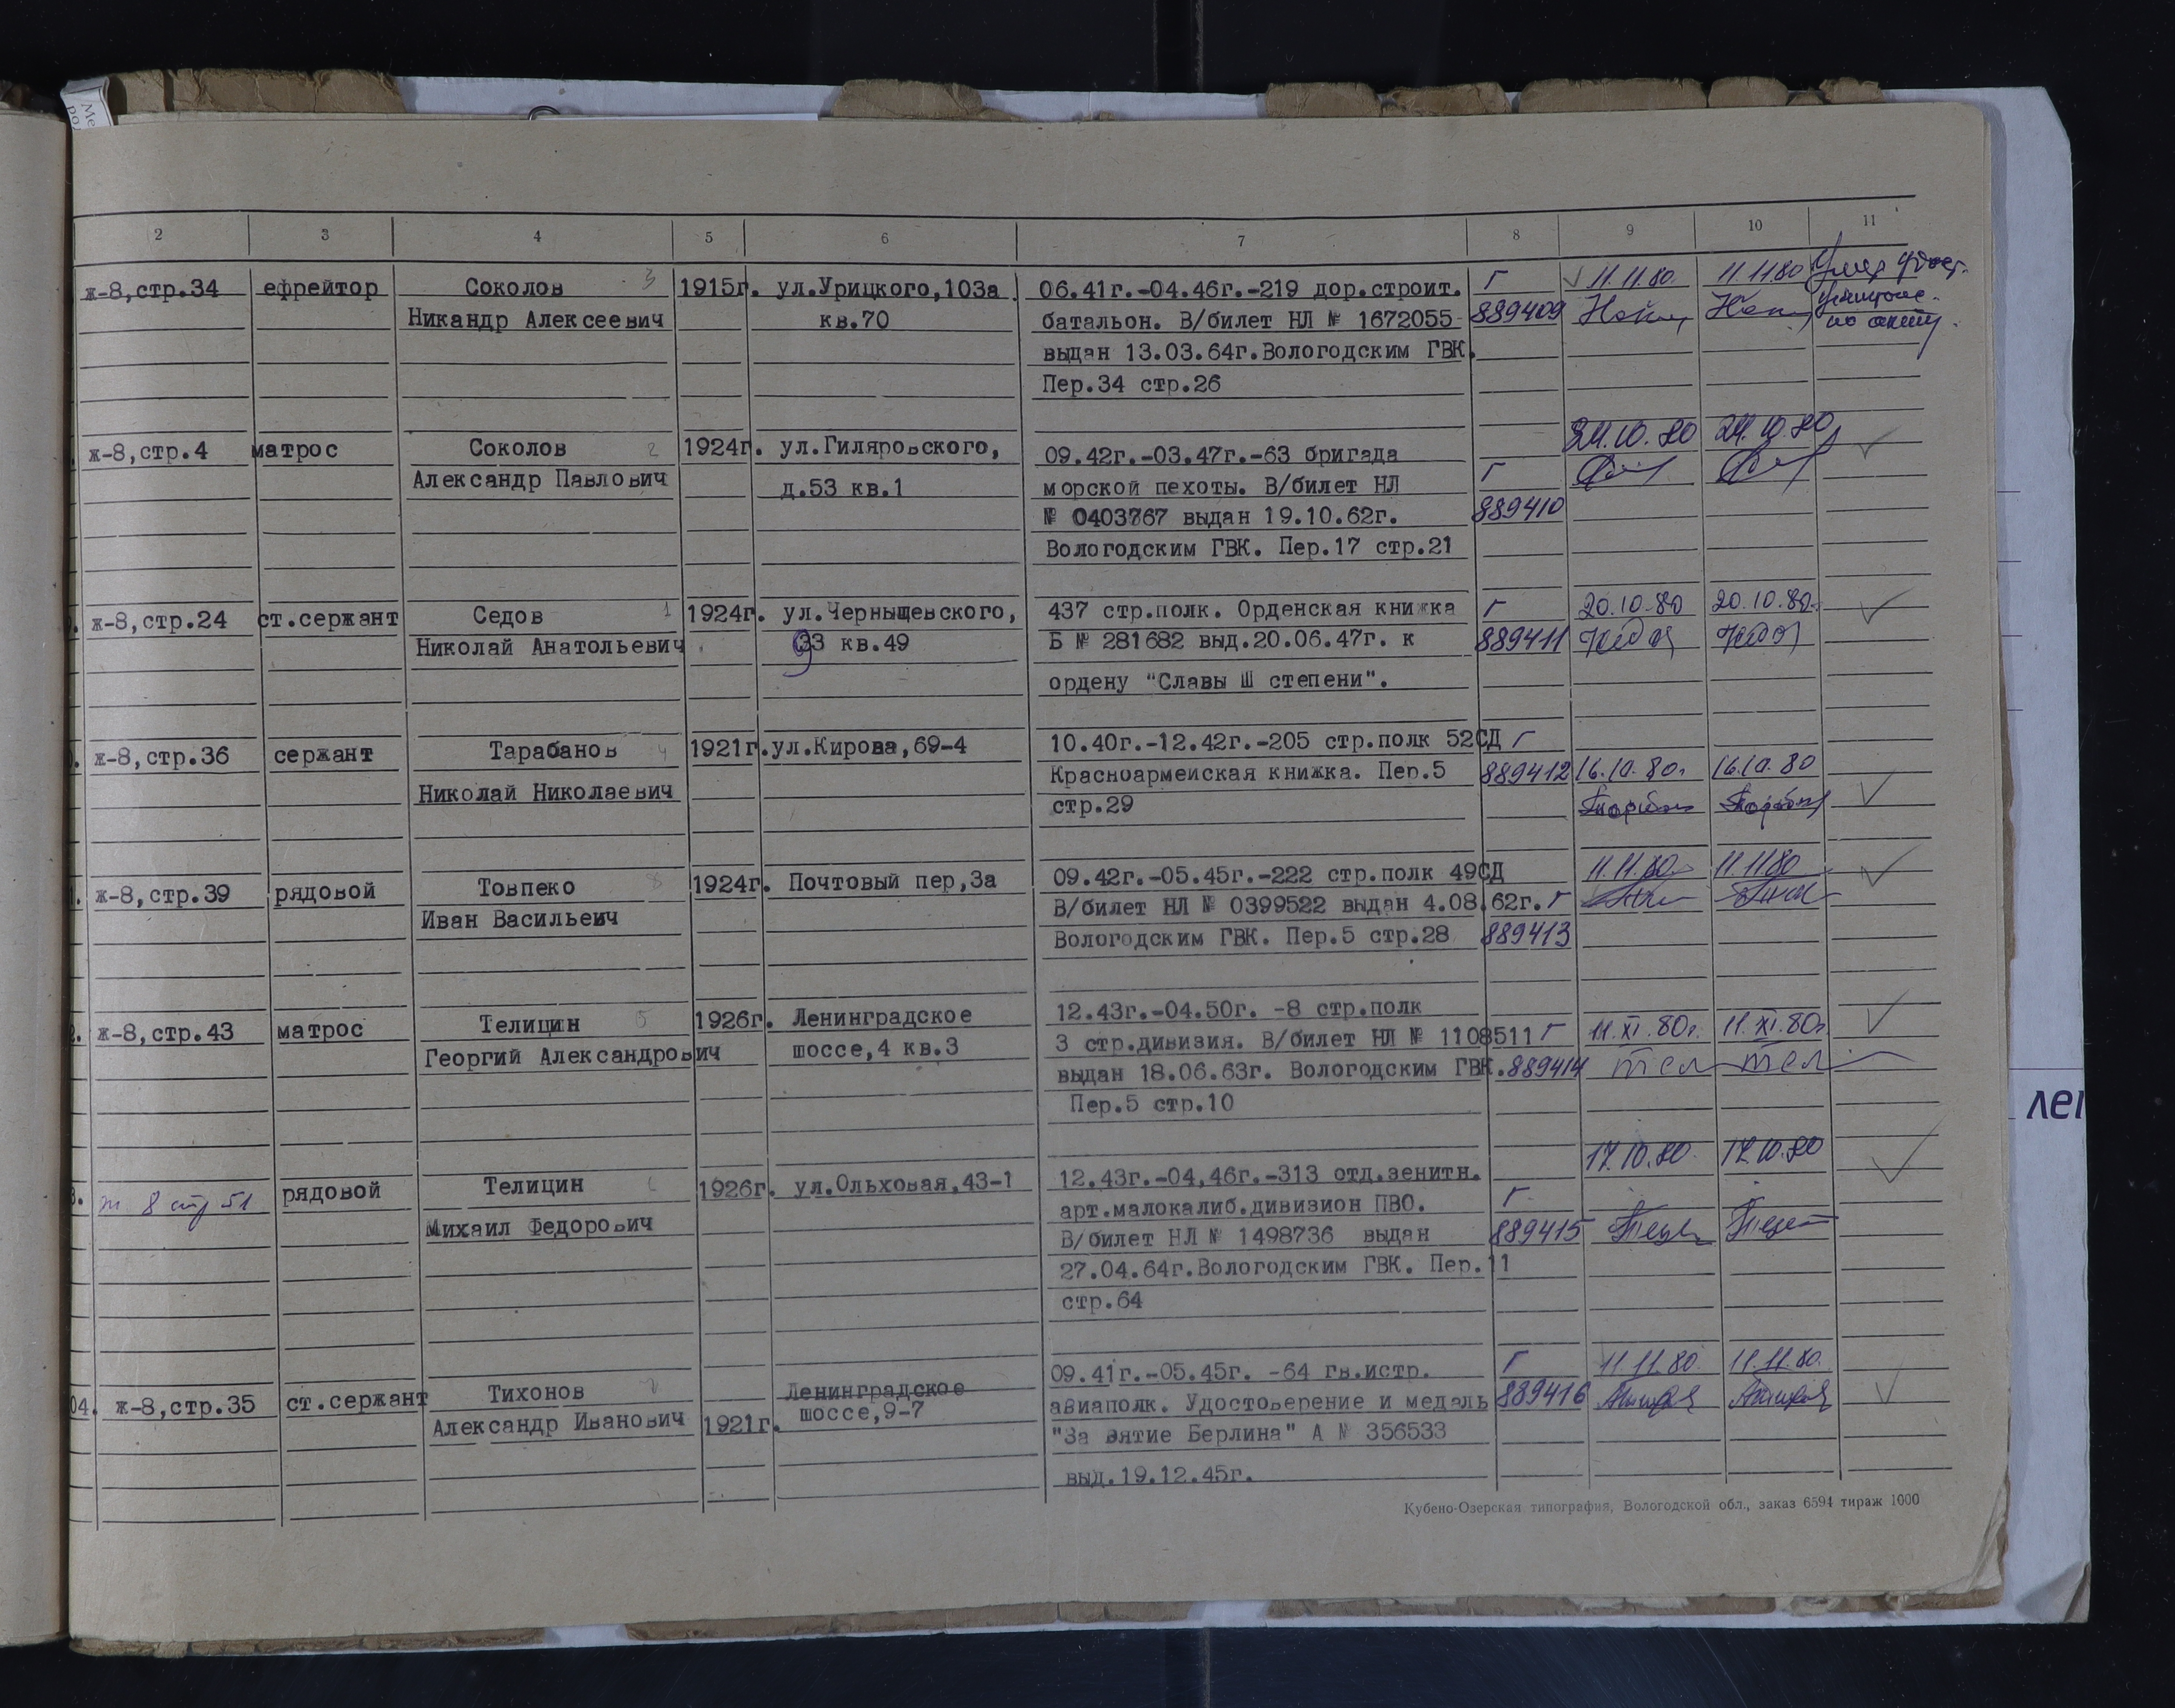 2 3 4 5 6 7 8 9 10 11
ж-8,стр.34 ефрейтор Соколов 3 1915г. ул.Урицкого,103а 06.41г.-04.46г.-219 дор.строит. Г 11.11.80. 11.11.80 Умер
Никандр Алексеевич кв.70 батальон. В/билет НЛ № 1672055 889409
по акту.
выдан 13.03.64г.Вологодским ГВК.
Пер.34 стр.26
24.10.80 24.10.80
ж-8,стр.4 матрос Соколов 2 1924г. ул.Гиляровского, 09.42г.-03.47г.-63 бригада
Александр Павлович д.53 кв.1 морской пехоты. В/билет НЛ Г
№ 0403767 выдан 19.10.62г. 889410
Вологодским ГВК. Пер.17 стр.21
ж-8,стр.24 ст.сержант Седов 1 1924г. ул.Чернышевского, 437 стр.полк. Орденская книжка Г 20.10.80 20.10.80.
Николай Анатольевич 93 кв.49 Б № 281682 выд.20.06.47г. к 889411
ордену "Славы Ш степени".
ж-8,стр.36 сержант Тарабанов 4 1921г. ул.Кирова,69-4 10.40г.-12.42г.-205 стр.полк 52СД Г
Николай Николаевич Красноармейская книжка. Пер.5 889412 16.10.80. 16.10.80
стр.29
ж-8,стр.39 рядовой Товпеко 8 1924г. Почтовый пер,3а 09.42г.-05.45г.-222 стр.полк 49СД 11.11.80. 11.11.80
Иван Васильевич В/билет НЛ № 0399522 выдан 4.08.62г. Г
Вологодским ГВК. Пер.5 стр.28 889413
ж-8,стр.43 матрос Телицин 5 1926г. Ленинградское 12.43г.-04.50г. -8 стр.полк
Георгий Александрович шоссе,4 кв.3 3 стр.дивизия. В/билет НЛ № 1108511 Г 11.XI.80г. 11.XI.80г.
выдан 18.06.63г. Вологодским ГВК. 889414 Тел Тел
Пер.5 стр.10
17.10.80. 17.10.80
ж 8 стр 51 рядовой Телицин 6 1926г. ул.Ольховая,43-1 12.43г.-04,46г.-313 отд.зенитн.
Михаил Федорович арт.малокалиб.дивизион ПВО. Г
В/билет НЛ № 1498736 выдан 889415
27.04.64г.Вологодским ГВК. Пер.11
стр.64
09.41г.-05.45г. -64 гв.истр. Г 11.11.80. 11.11.80.
04. ж-8,стр.35 ст.сержант Тихонов 1921г. Ленинградское авиаполк. Удостоверение и медаль 889416
Александр Иванович шоссе,9-7 "За вятие Берлина" А № 356533
выд.19.12.45г.
Кубено-Озерская типография, Вологодской обл., заказ 6594 тираж 1000